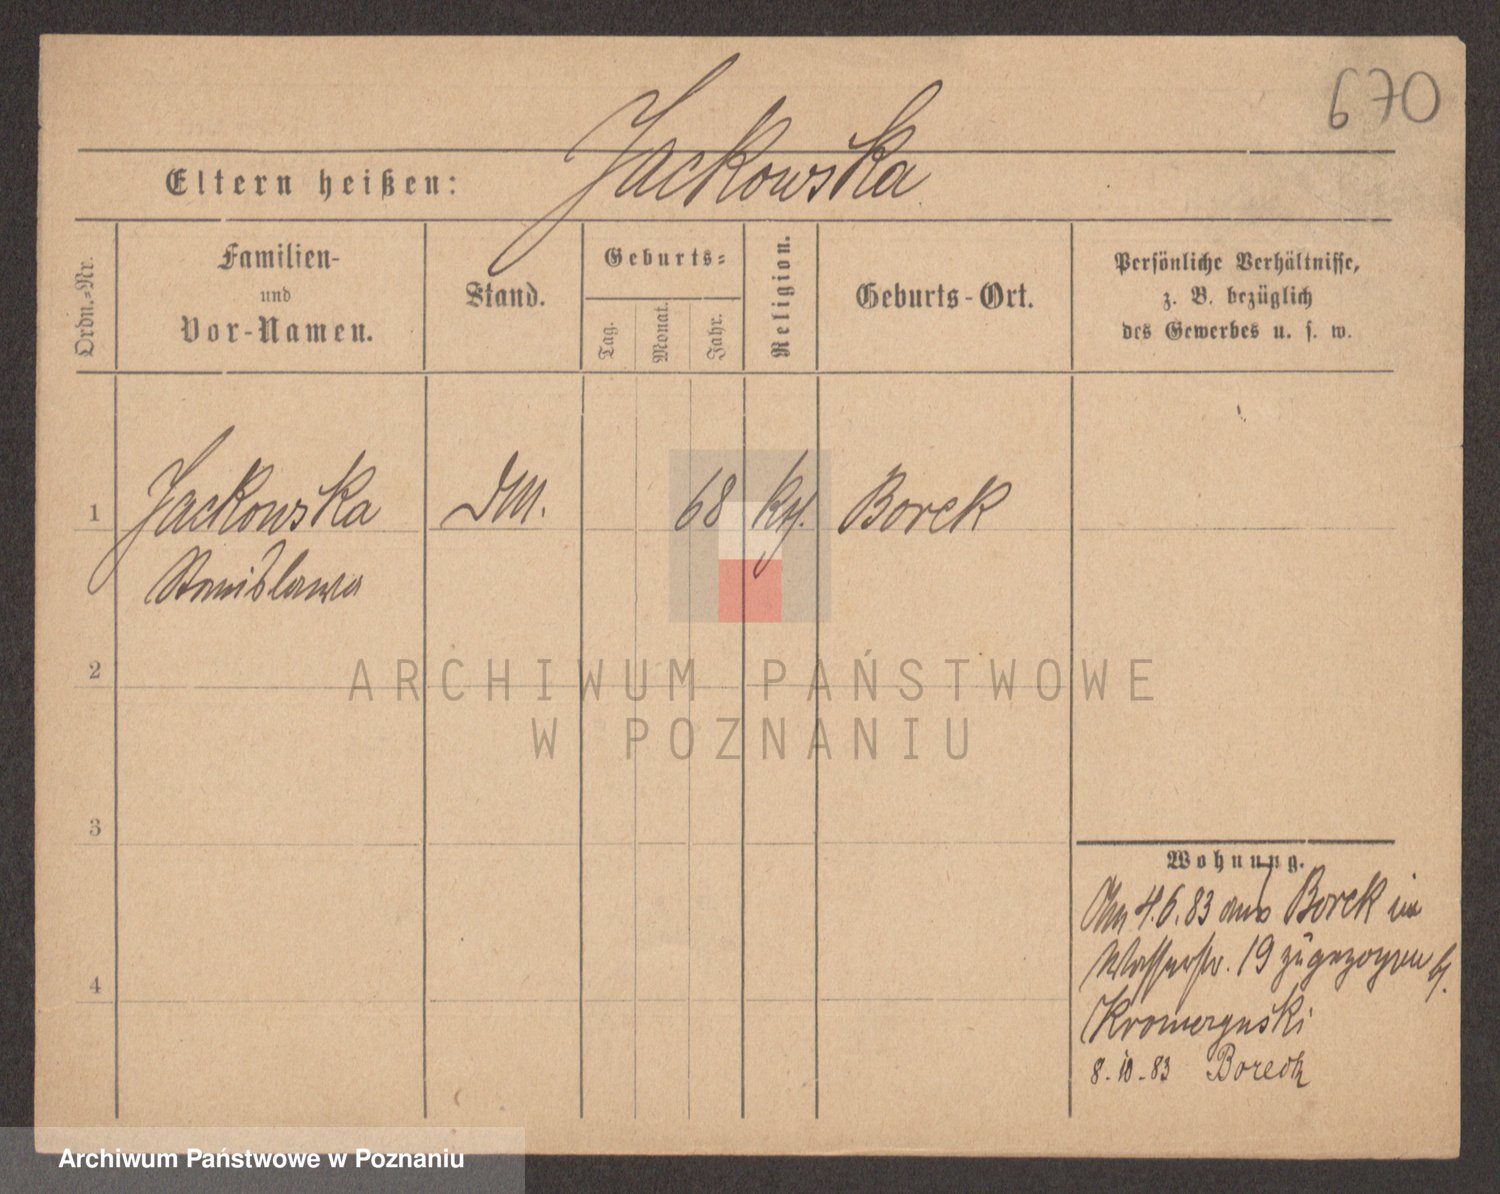 670
Jackowska
Eltern heißen:
Ordn.-Nr.
Familien-
und
Vor-Namen.
Stand.
Geburts-
Tag.
Monat.
Jahr.
Religion.
Geburts-Ort.
Persönliche Verhältnisse,
z. B. bezüglich
des Gewerbes u. s. w.
1 Jackowska DM. 68 kth. Borek
Stanislawa
2
3
4
Wohnung.
Am 4.6.83 aus Borek in
Wasserstr. 19 zugezogen b.
8.10.83 Boreck
ARCHIWUM PAŃSTWOWE
W POZNANIU
Archiwum Państwowe w Poznaniu